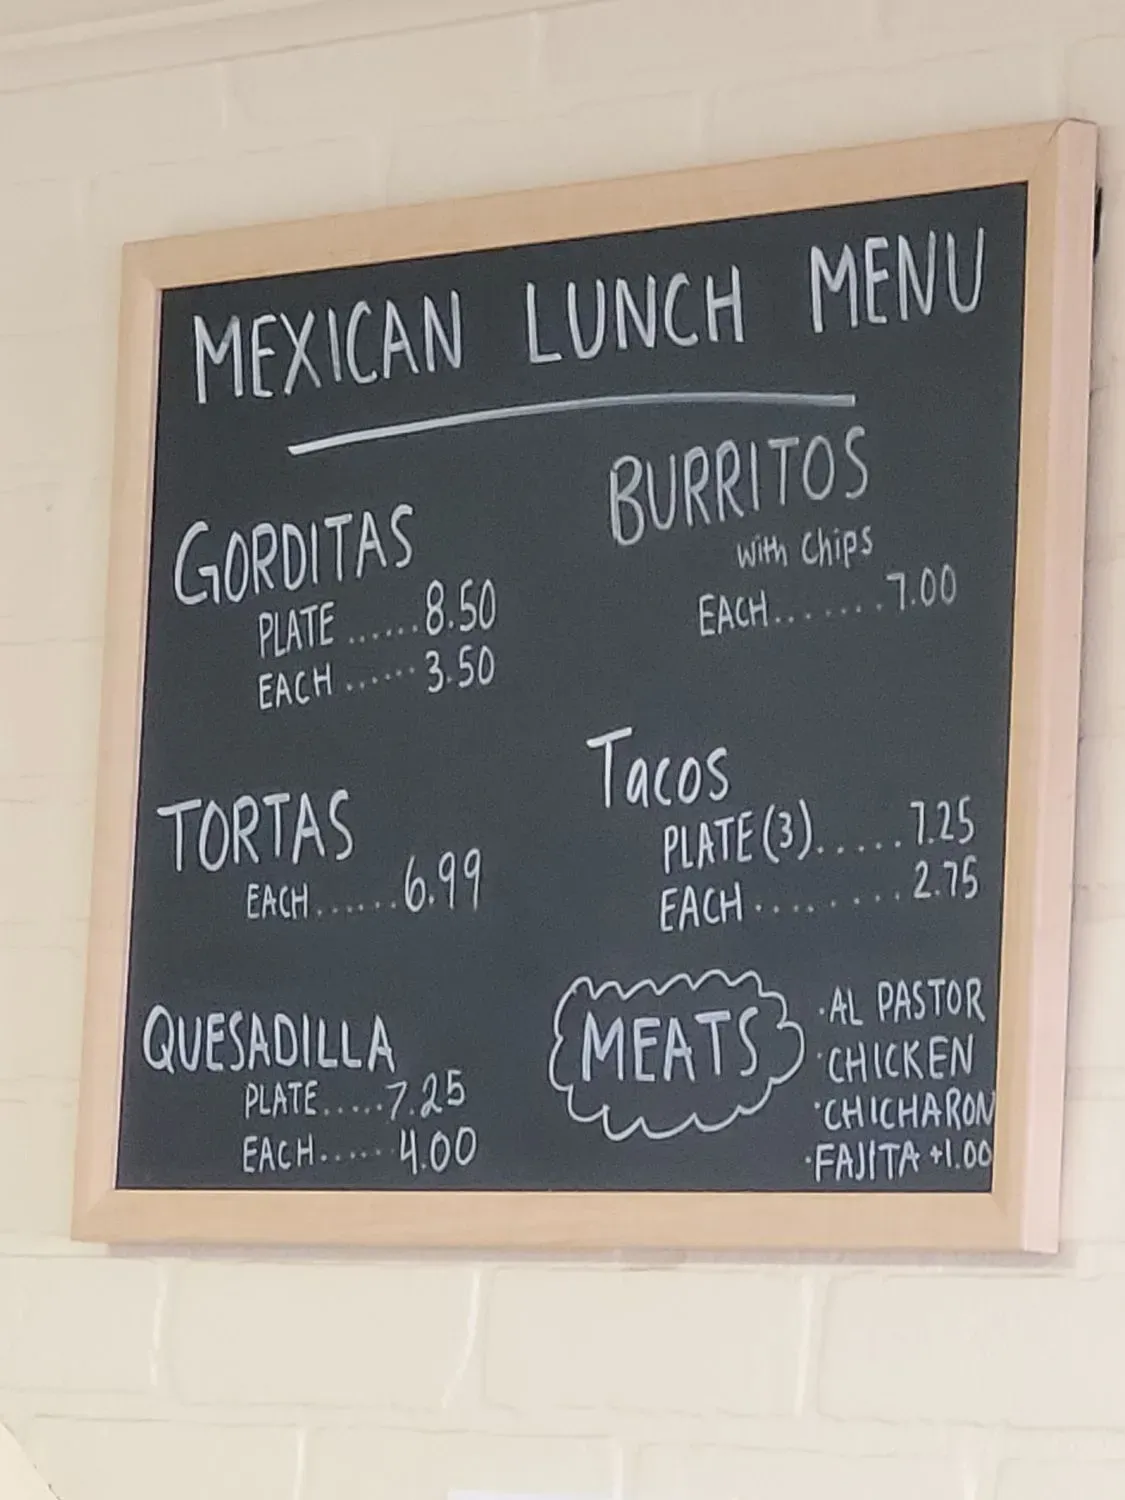 MEXICAN LUNCH MENU
GORDITAS
PLATE ...... 8.50
EACH ...... 3.50
TORTAS
EACH ...... 6.99
QUESADILLA
PLATE ..... 7.25
EACH ...... 4.00
BURRITOS
with Chips
EACH ....... 7.00
Tacos
PLATE (3) ..... 7.25
EACH ........ 2.75
MEATS
· AL PASTOR
· CHICKEN
· CHICHARON
· FAJITA +1.00